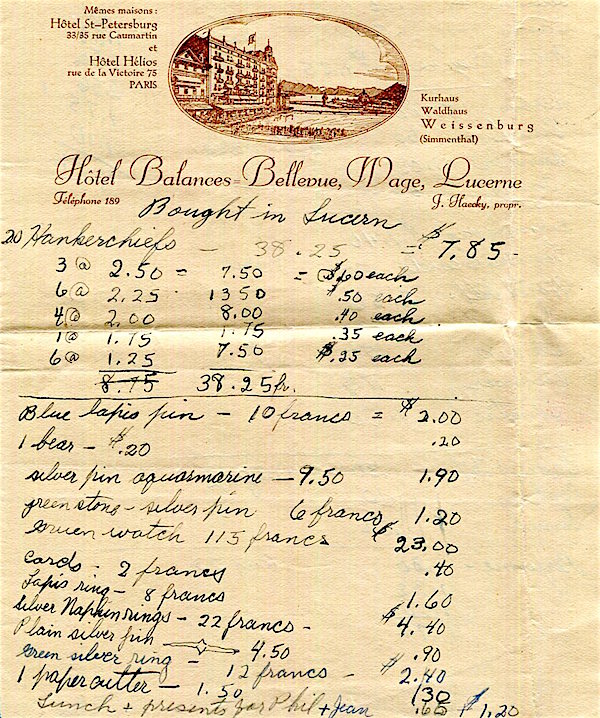 Mêmes maisons :
Hôtel St-Petersburg
33/35 rue Caumartin
et
Hôtel Hélios
rue de la Victoire 75
PARIS
Kurhaus
Waldhaus
Weissenburg
(Simmenthal)
Hôtel Balances-Bellevue, Wage, Lucerne
Téléphone 189
J. Haecky, propr.
Bought in Lucern
20 Hankerchiefs – 38.25 = $7.85
3 @ 2.50 = 7.50 = $.60 each
6 @ 2.25 13 50 .50 each
4 @ 2.00 8.00 .40 each
1 @ 1.75 1.75 .35 each
6 @ 1.25 7.50 $.25 each
8.75 38.25 fr.
Blue lapis pin – 10 francs = $2.00
1 bear – $.20 .20
silver pin aquasmarine – 9.50 1.90
green stone – silver pin 6 francs 1.20
Gruen watch 115 francs $23.00
cards – 2 francs .40
Lapis ring – 8 francs 1.60
Silver Napkin rings – 22 francs – $4.40
Plain silver pin 4.50 .90
Green silver ring – 12 francs – $2.40
1 paper cutter – 1.50 .30
Lunch + presents for Phil + Jean .60 $1.20